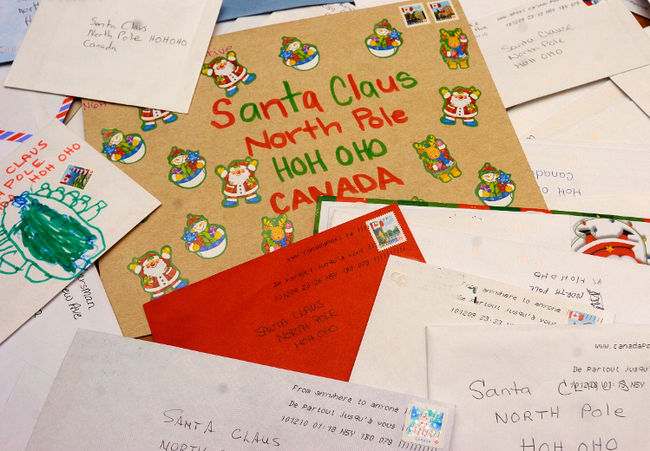 Santa Claus
North Pole HOHOHO
Canada
Santa Claus
North Pole
HOH OHO
CANADA
Santa Clause
North Pole
HOH OHO
CLAUS
POLE
HOH OHO
Canada
HoH
www.canadapost.ca
De partout jusqu'à
101209 23:26 HSY 1B0 078
SANTA CLAUS
NORTH POLE
HOH OHO
HIOHIO
NORTH POLL
From anywhere to anyone
De partout jusqu'à vous
101209 23:23 HSY
From anywhere to anyone
De partout jusqu'à vous
101210 01:18 HSY 1B0 078
SANTA CLAUS
NORTH
www.canadapo
De partout jusqu'
Santa Claus
NORTH Pole
HOH OHO